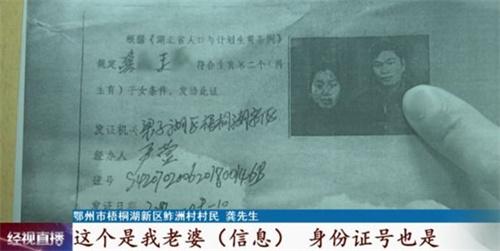 根据《湖北省人口与计划生育条例》
规定 龚 王 符合生育第二个(再
生育)子女条件,发给此证
发证机关 梁子湖区梧桐湖新区
经办人
证号
鄂州市梧桐湖新区鲊洲村村民 龚先生
经视直播
这个是我老婆(信息) 身份证号也是